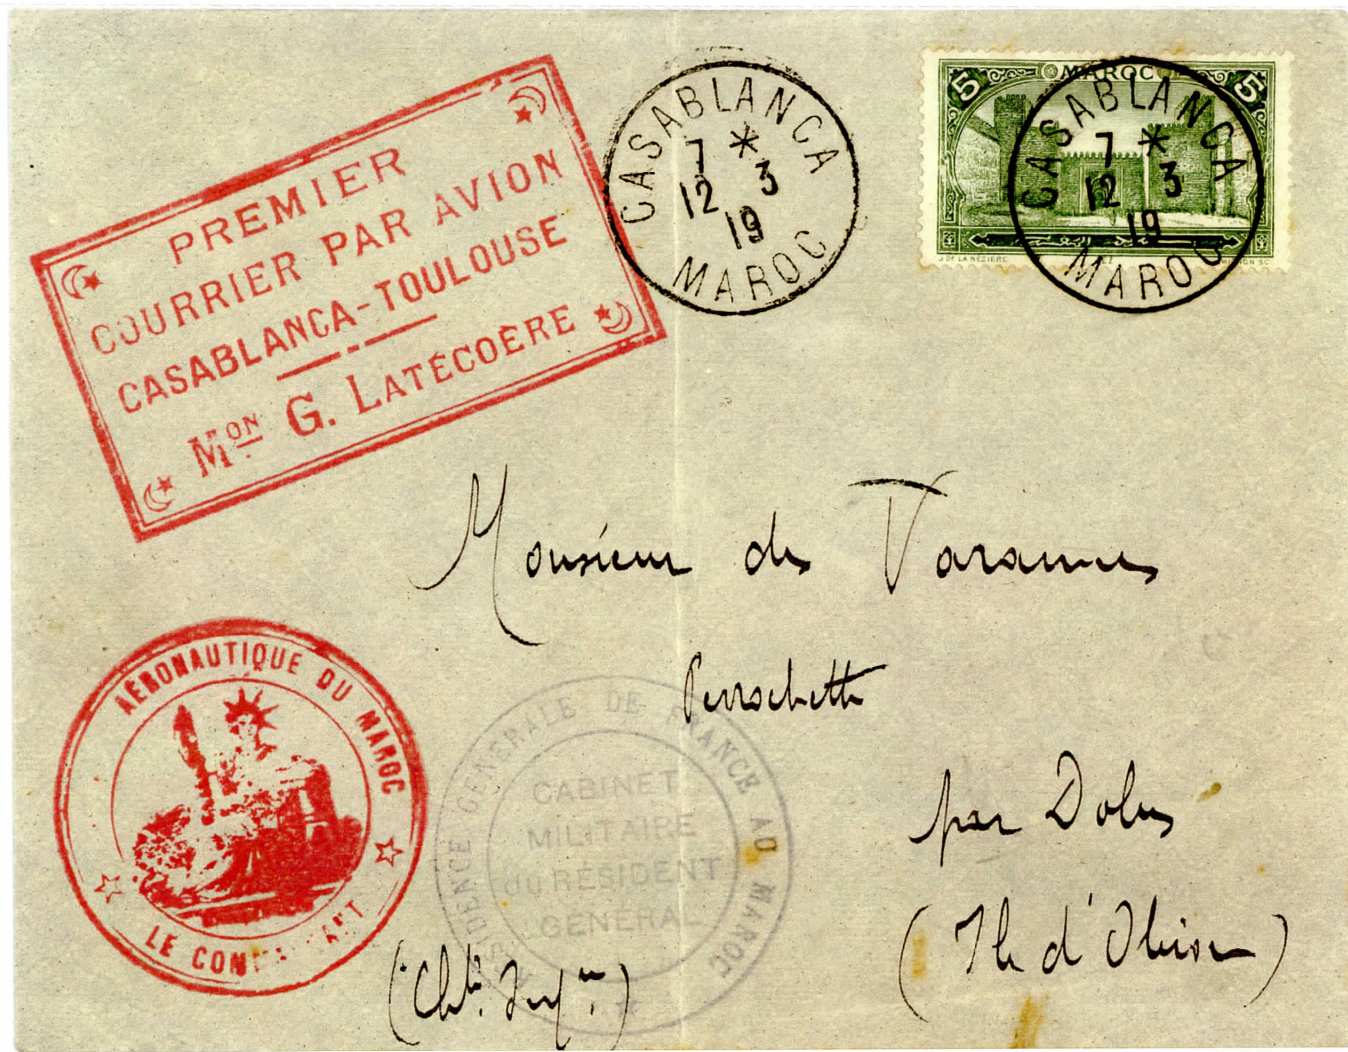 PREMIER
COURRIER PAR AVION
CASABLANCA-TOULOUSE
Mon G. LATÉCOÈRE
CASABLANCA
7 *
12 3
19
MAROC
5 MAROC 5
J. DE LA NEZIERE
CASABLANCA
7 *
12 3
19
MAROC
Monsieur des Varannes
Perrochette
par Dolus
(Ile d'Oléron)
(Chte. Infre.)
AÉRONAUTIQUE DU MAROC
LE COMMANDANT
RÉSIDENCE GÉNÉRALE DE FRANCE AU MAROC
CABINET
MILITAIRE
DU RÉSIDENT
GÉNÉRAL